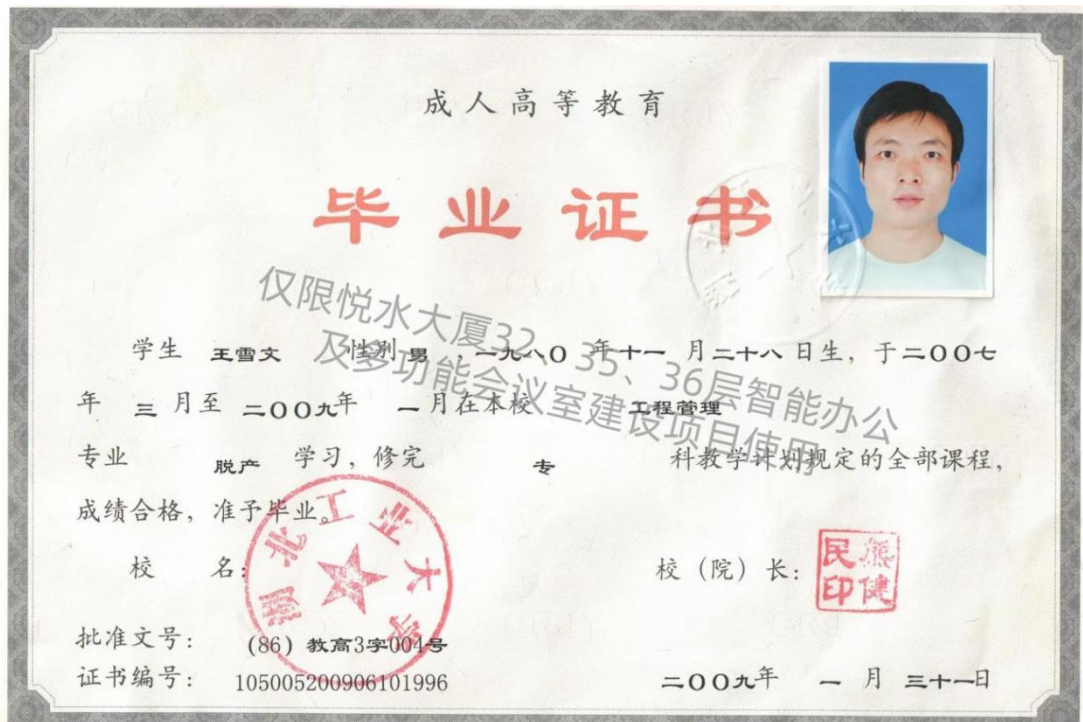 成人高等教育
毕业证书
仅限悦水大厦32、35、36层智能办公
及多功能会议室建设项目使用
学生 王雪文 性别 男 ，一九八〇 年 十一 月 二十八 日生，于二〇〇七
年 三 月至 二〇〇九年 一 月在本校 工程管理
专业 脱产 学习，修完 专 科教学计划规定的全部课程，
成绩合格，准予毕业。
校 名： 校（院）长：
湖北工业大学
熊健民印
批准文号： (86) 教高3字004号
证书编号： 105005200906101996 二〇〇九年 一 月 三十一日